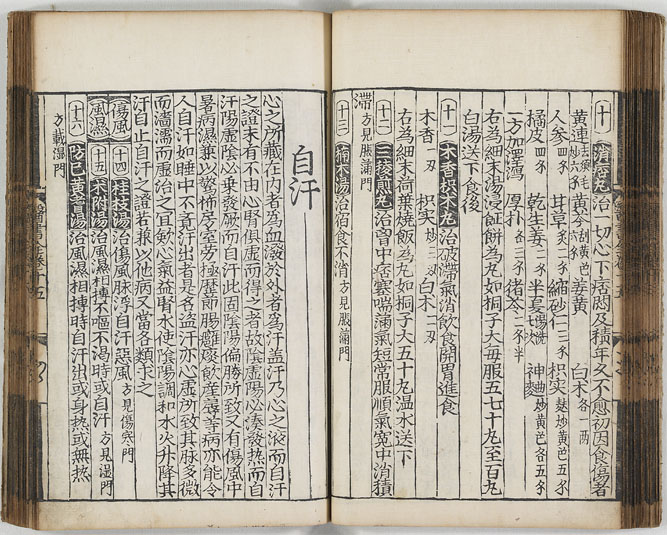 十 消痞丸 治一切心下痞悶及積年久不愈初因食傷者
黃連 去須毛炒六錢 黃芩 刮黃芭六錢 姜黃 白术 各一兩
人參 四錢 甘草 炙一錢 縮砂仁 二錢 枳实 麩炒黃芭各五錢
橘皮 四錢 乾生姜 二錢 半夏 神曲 炒黃芭各五錢
一方加澤瀉 厚朴 各三錢 猪苓 二錢半
右為細末湯浸䭔餅為丸如桐子大每服五七十丸至百丸
白湯送下食後
十一 木香枳术丸 治破滯氣消飲食開胃進食
木香 一刄 枳实 炒三刄 白术 一刄
右為細末荷葉燒飯為丸如桐子大五十丸温水送下
十二 三稜煎丸 治胷中痞塞喘滿氣短常服順氣寬中消積
滯 方見脹滿門
十三 補不湯 治宿食不消 方見脹滿門
自汗
心之所藏在内者為血潑於外者為汗盖汗乃心之液而自汗
之證未有不由心腎俱虚而得之者故陰虚陽必湊發熱而自
汗陽虚陰必乗發厥而自汗此固陰陽偏勝所致又有傷風中
暑病濕兼以驚怖房室劳極歷節腸癰痰飲産蓐等病亦能令
人自汗如睡中不竟汗出者是名盗汗亦心虚所致其脉多微
而濡濡而虚治之宜歛心氣益腎水使陰陽調和水火升降其
汗自止自汗之證若兼以他病又當各類求之
傷風 十四 桂枝湯 治傷風脉浮自汗惡風 方見傷寒門
風濕 十五 术附湯 治風濕相搏不嘔不渴時或自汗 方見濕門
十六 防已黃耆湯 治風濕相搏時自汗出或身熱或無熱
方載濕門